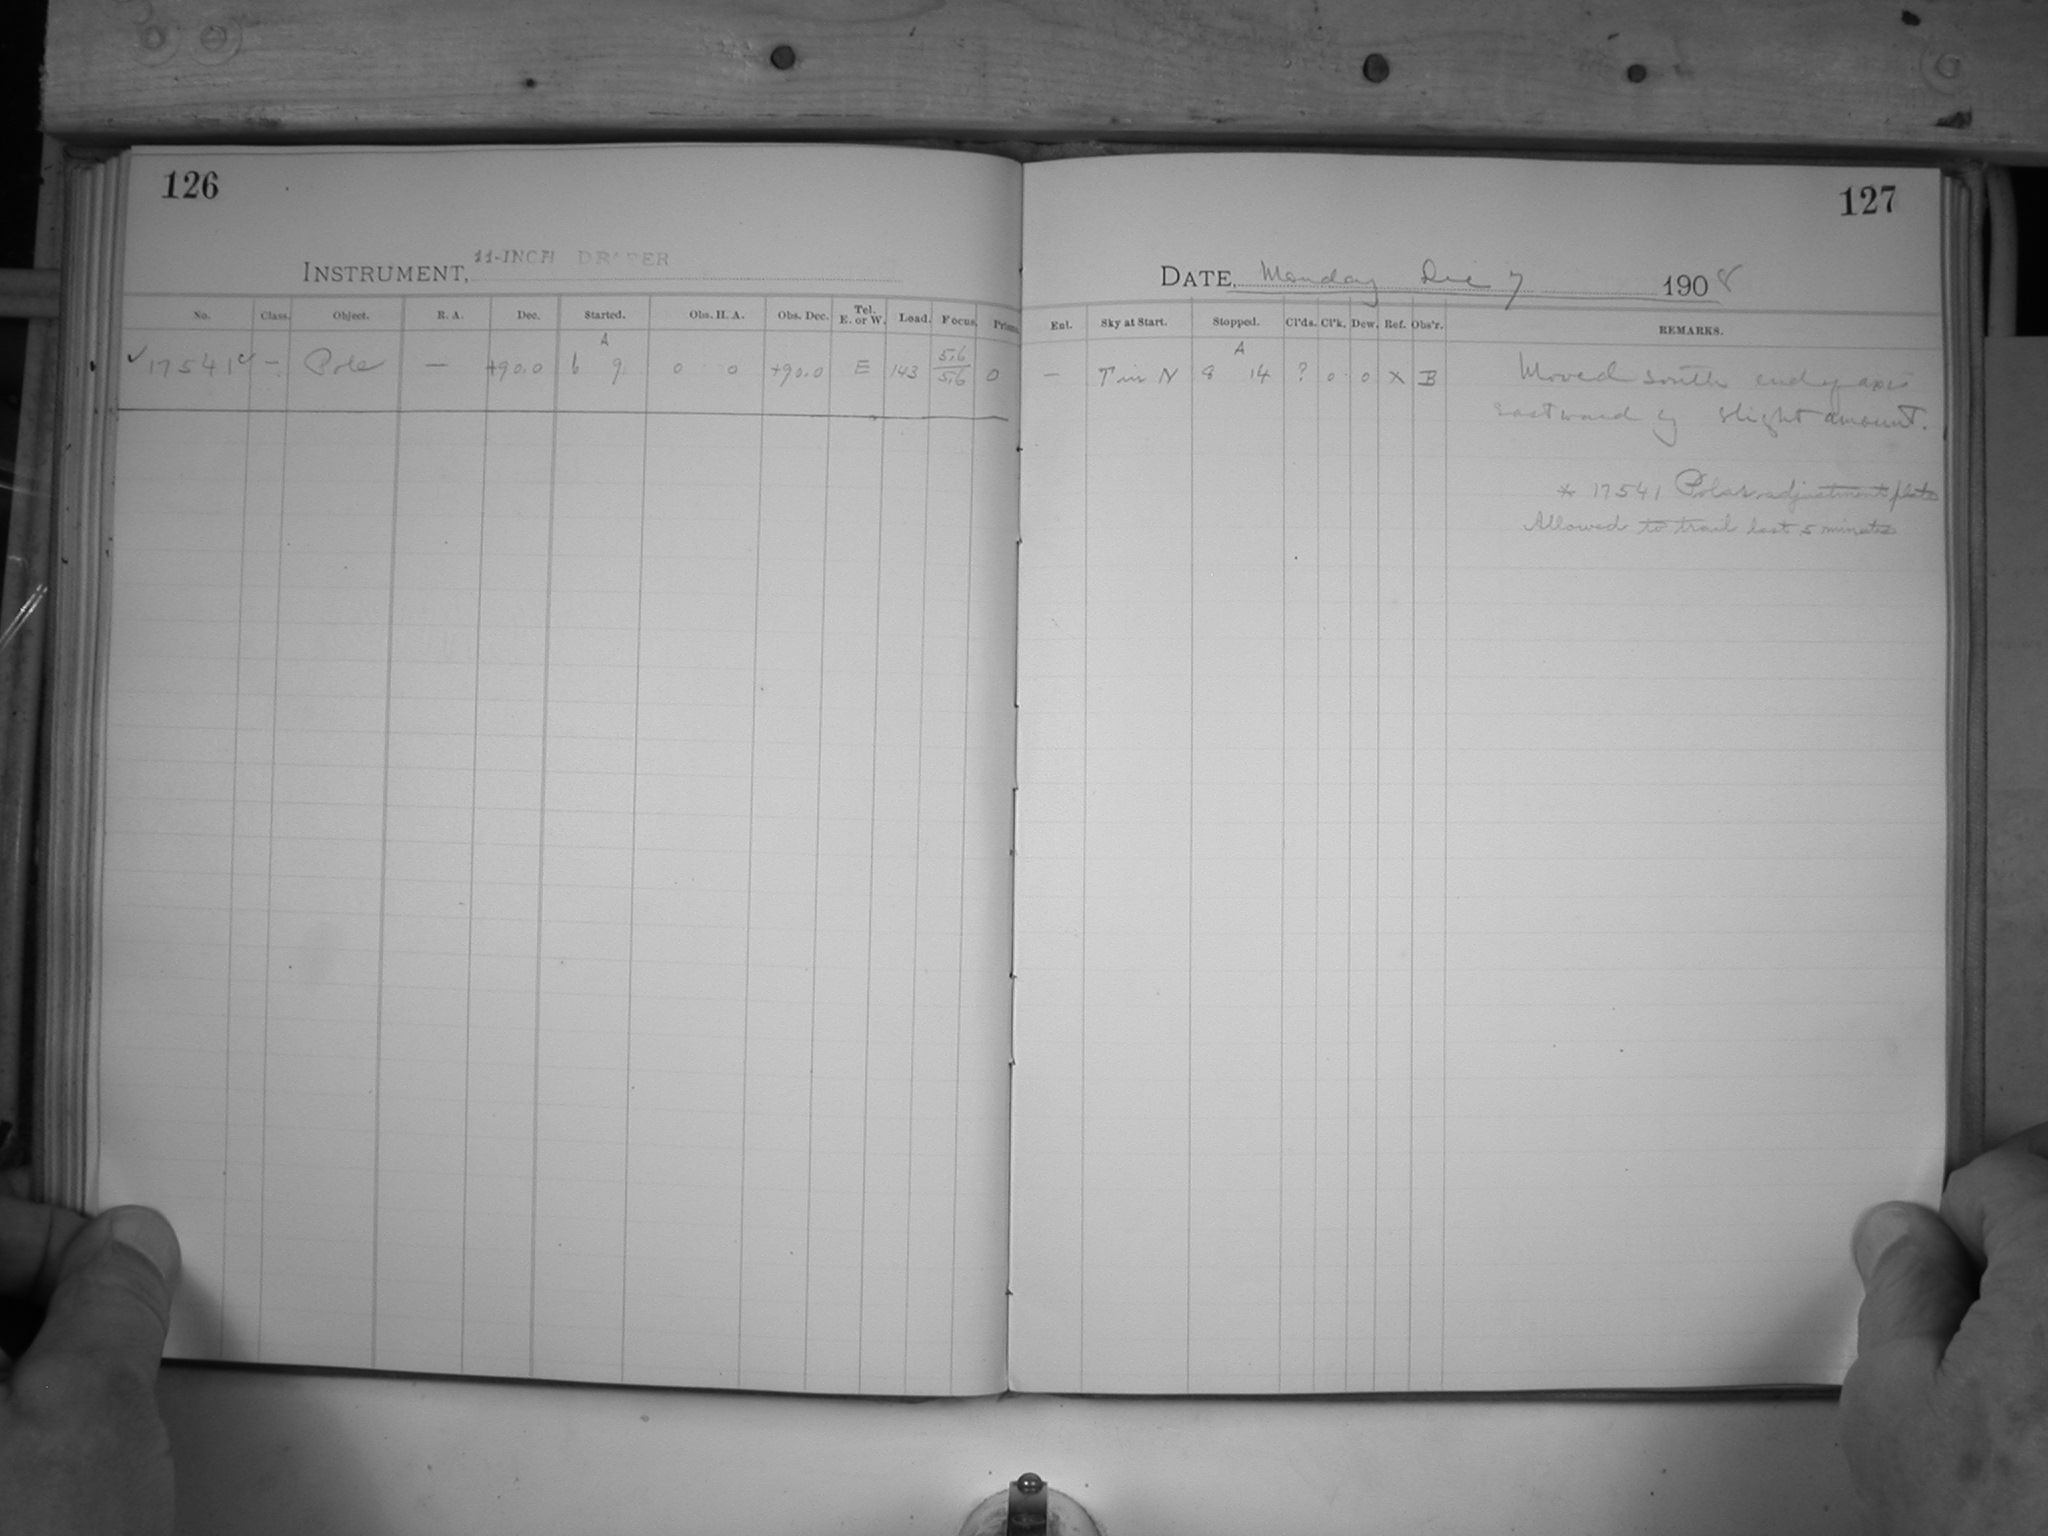 126
127
INSTRUMENT, 11-INCH DRAPER
DATE, Monday Dec 7 1908
No. Class. Object. R. A. Dec. Started. Obs. H. A. Obs. Dec. Tel. E. or W. Load. Focus. Prisms.
Enl. Sky at Start. Stopped. Cl'ds. Cl'k. Dew. Ref. Obs'r. REMARKS.
A
A
✓ 17541 ✓ — Pole — +90.0 6 9 0 0 +90.0 E 143 5.6/5.6 0
— T in N 8 14 ? 0 0 X B Moved south end of axis
eastward by slight amount.
* 17541 Polar adjustment plate
Allowed to trail last 5 minutes